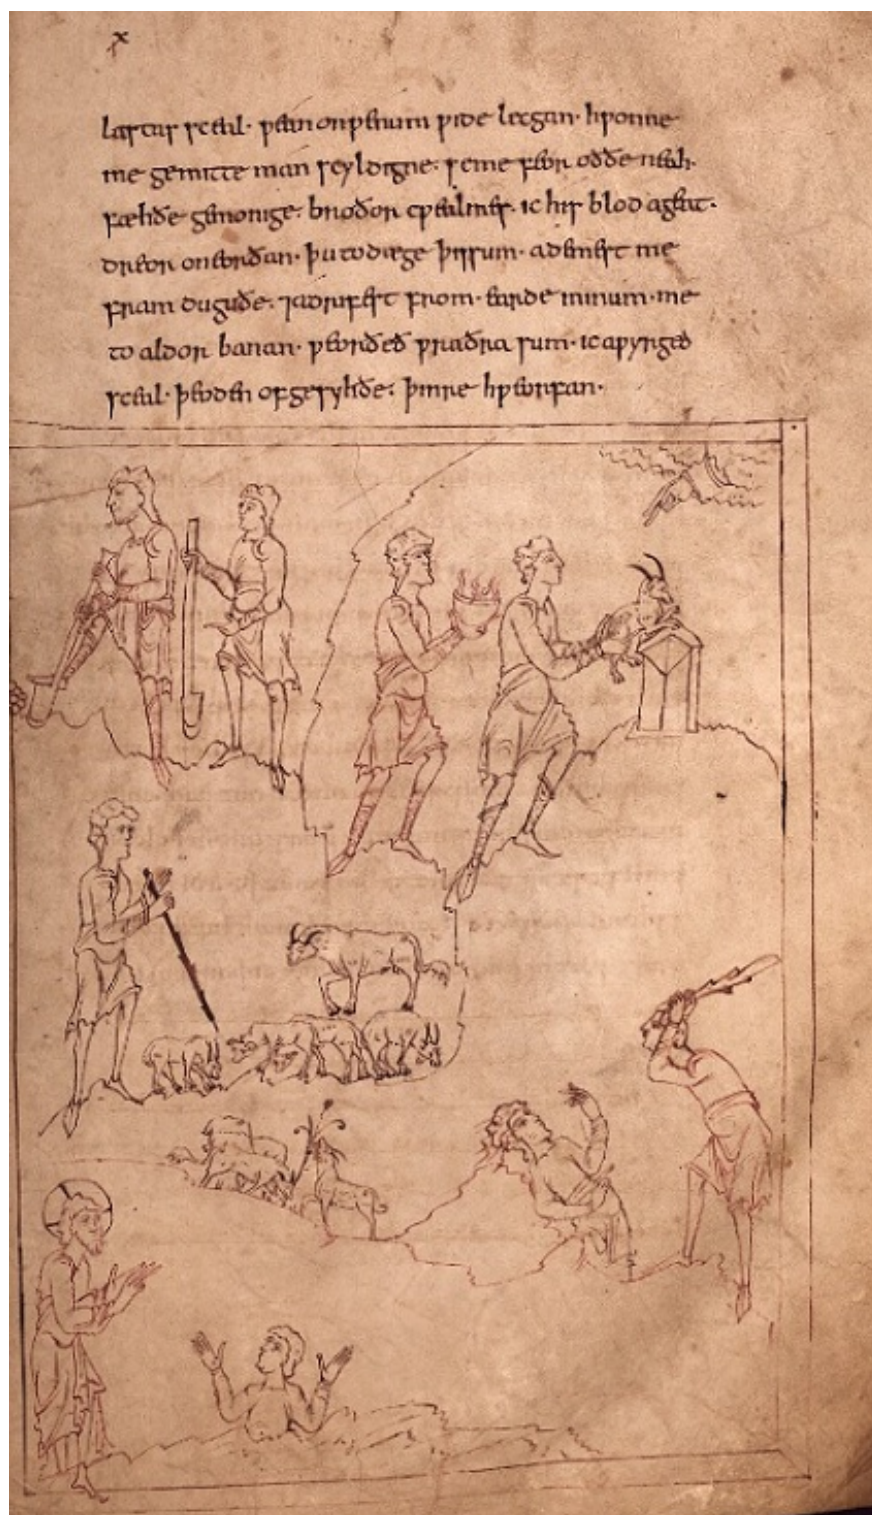 lastas sceal· ƿean onƿenum ƿide lecgan· hƿonne
me gemitte man scyldigne· seme feor oððe neah·
fæhðe gemonige· broðor cƿealmes· ic his blod ageat·
dreor oneorðan· þu todæge þissum· ademest me
fram duguðe· ⁊adrifest from· earde minum·me
to aldor banan· ƿeorðeð ƿraðra sum·icaƿyrged
sceal·þeoden ofgesyhðe· þinre hƿeorfan·